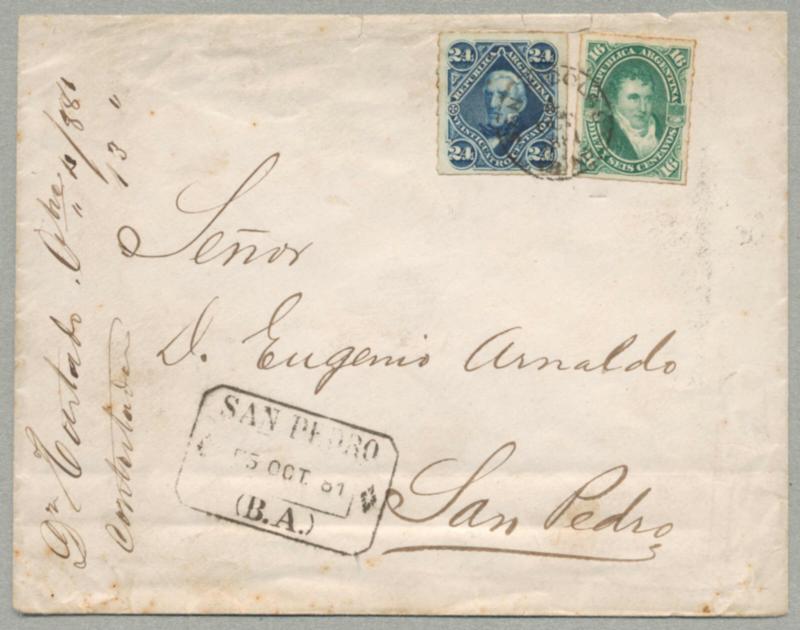 24 24
REPUBLICA ARGENTINA
VEINTICUATRO CENTAVOS
24 24
16 16
REPUBLICA ARGENTINA
DIEZ Y SEIS CENTAVOS
16 16
Señor
D. Eugenio Arnaldo
San Pedro
SAN PEDRO
5 OCT. 81
(B.A.)
Dr Hurtado. 4/881
contestada " 13 "